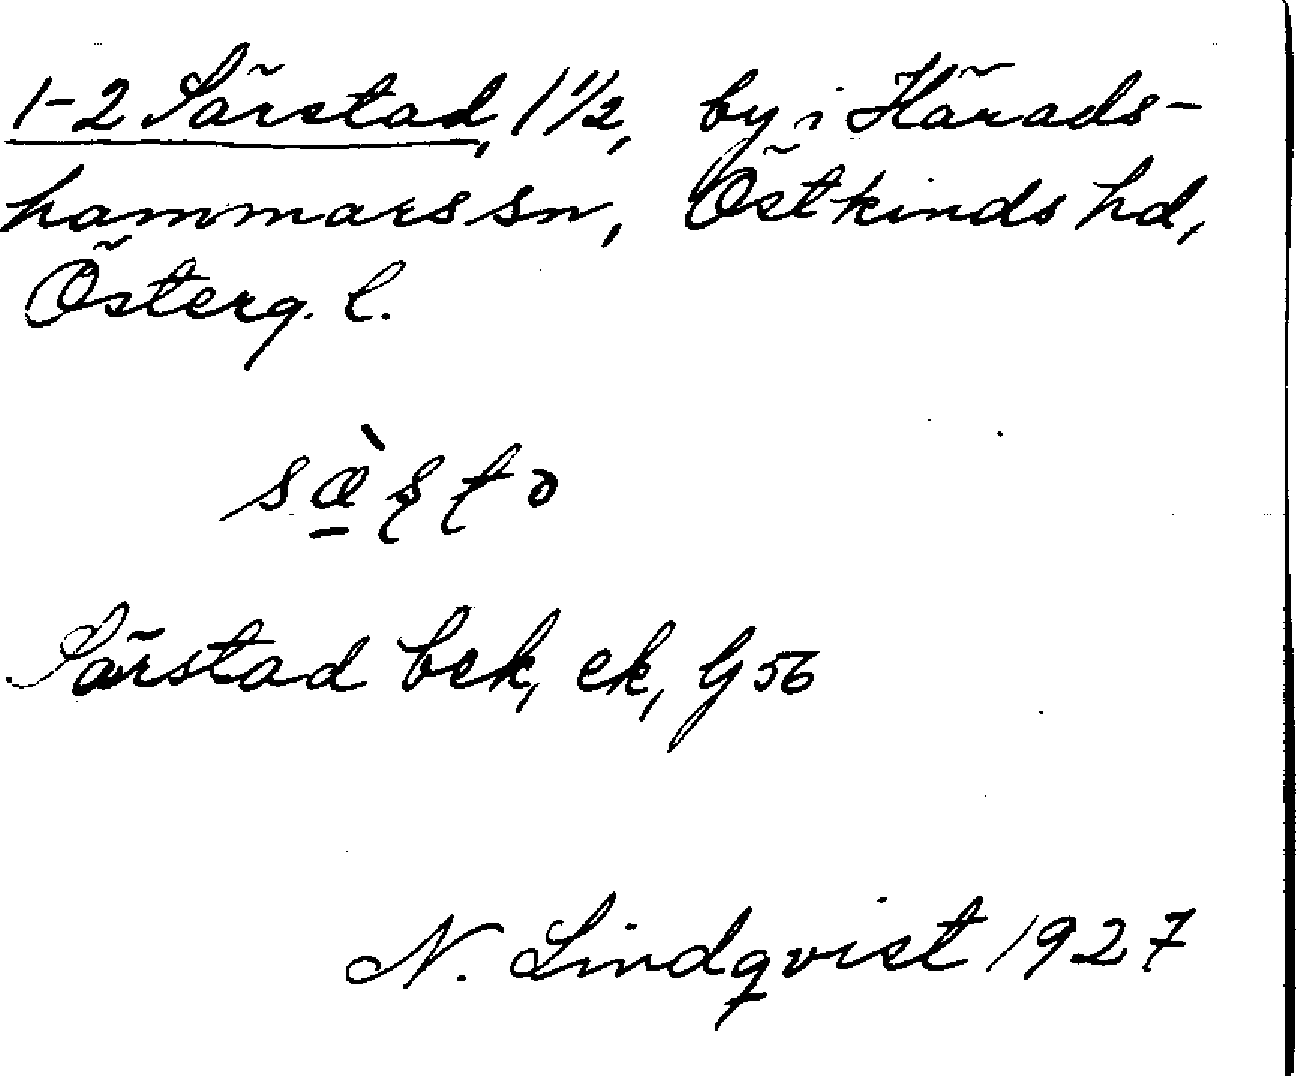 1-2 Särstad, 1 1/2, by i Härads-
hammars sn, Östkinds hd,
Österg. l.
sæ̀ʂʈo
Särstad bek, ek, G 56
N. Lindqvist 1927